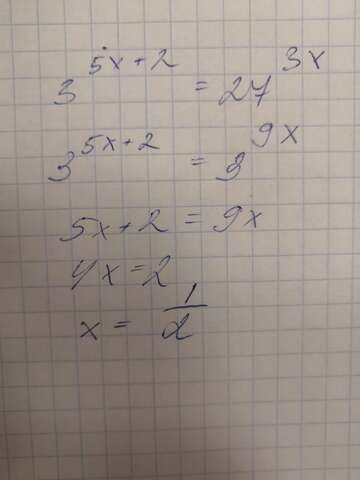 3^{5x+2} = 27^{3x}
3^{5x+2} = 3^{9x}
5x+2 = 9x
4x = 2
x = \frac{1}{2}